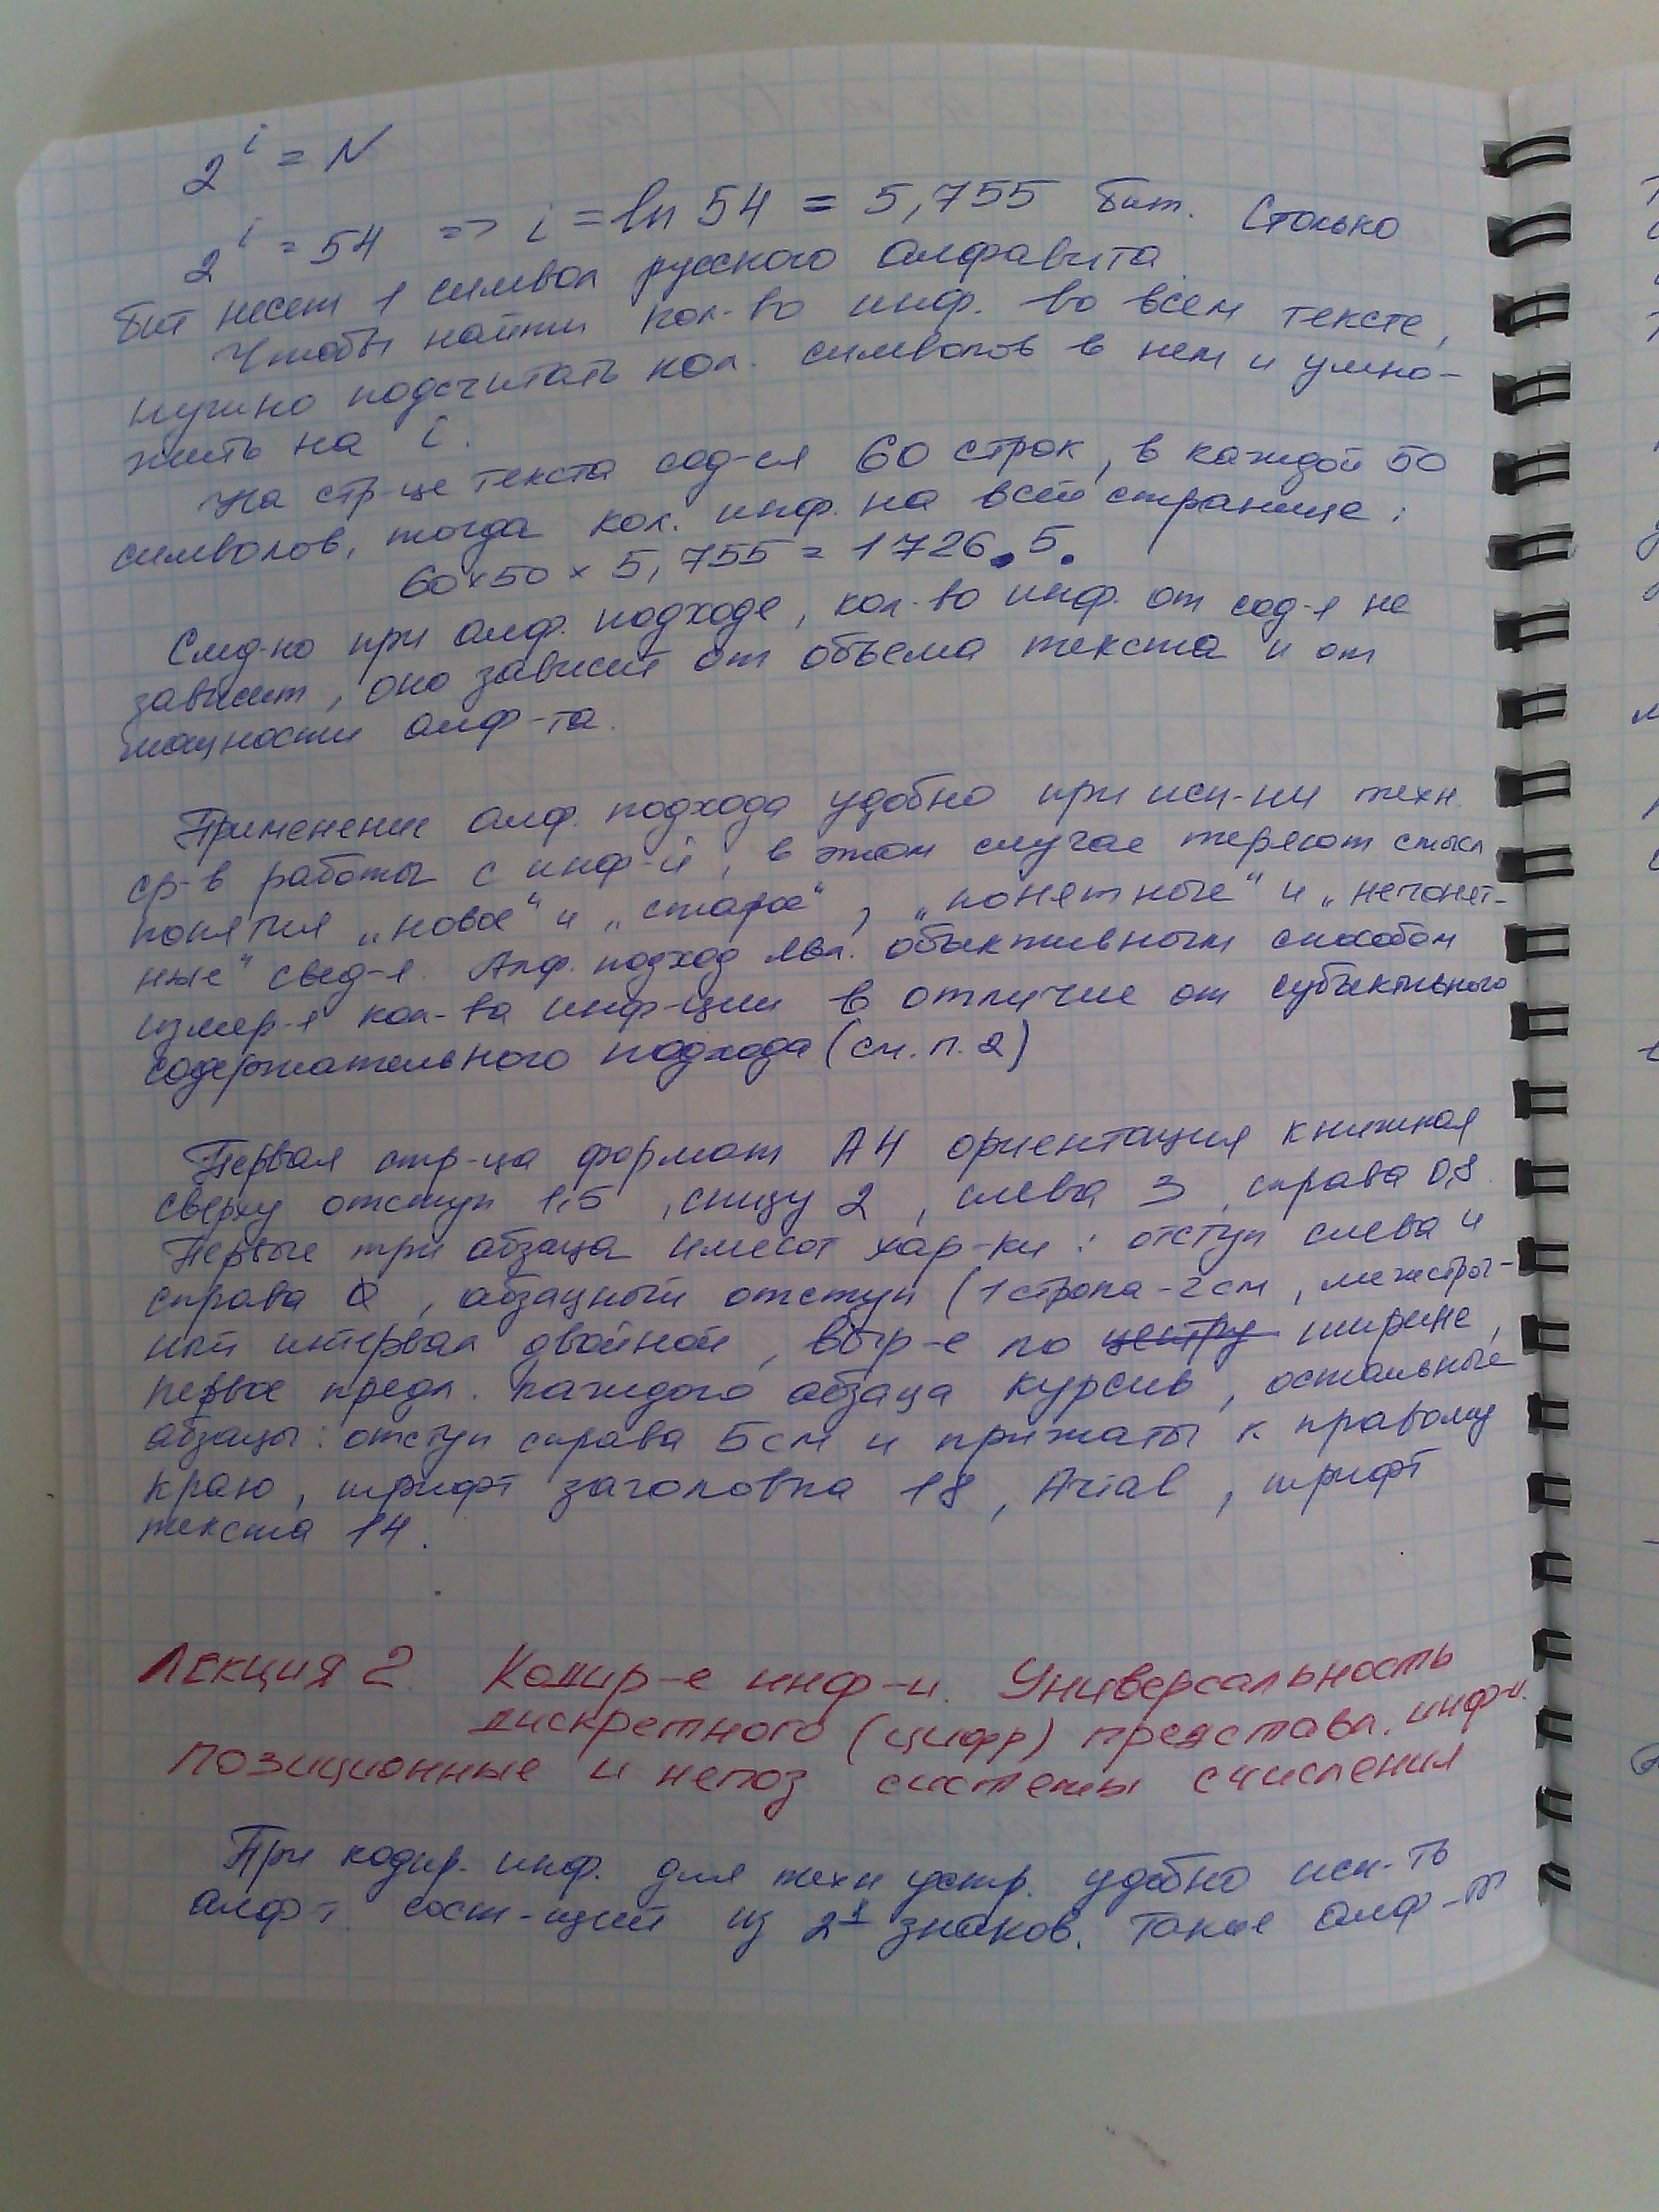 2^i = N
2^i = 54 => i = ln 54 = 5,755 бит. Столько
бит несет 1 символ русского алфавита
Чтобы найти кол-во инф. во всем тексте,
нужно подсчитать кол. символов в нем и умно-
жить на i.
На стр-це текста сод-ся 60 строк, в каждой 50
символов, тогда кол. инф. на всей странице:
60×50×5,755 = 1726.5.
След-но при алф. подходе, кол-во инф. от сод-я не
зависит, оно зависит от объема текста и от
мощности алф-та.
Применение алф. подхода удобно при исп-ни техн.
ср-в работы с инф-й, в этом случае теряют смысл
понятия „новое" и „старое", „понятные" и „непонят-
ные" свед-я. Алф. подход явл. объективным способом
измер-я кол-ва инф-ции в отличие от субъективного
содержательного подхода (см. п. 2)
Первая стр-ца формат А4 ориентация книжная
сверху отступ 1,5, снизу 2, слева 3, справа 0,8.
Первые три абзаца имеют хар-ки: отступ слева и
справа 0, абзацный отступ (1 строка - 2 см, межстроч-
ный интервал двойной, выр-е по центру ширине,
первое предл. каждого абзаца курсив, остальные
абзацы: отступ справа 5 см и прижаты к правому
краю, шрифт заголовка 18, Arial, шрифт
текста 14.
Лекция 2. Кодир-е инф-и. Универсальность
дискретного (цифр) представл. инф-и.
Позиционные и непоз системы счисления
При кодир. инф. для техн устр. удобно исп-ть
алф-т сост-щий из 2х знаков. Такие алф-т